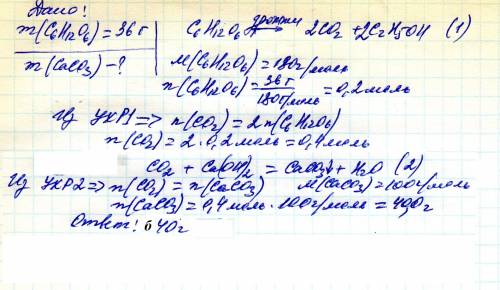 Дано:
m(C6H12O6) = 36 г
m(CaCO3) - ?
C6H12O6 дрожжи → 2CO2 + 2C2H5OH (1)
M(C6H12O6) = 180г/моль
n(C6H12O6) = 36 г / 180г/моль = 0,2моль
Из УХР1 => n(CO2) = 2n(C6H12O6)
n(CO2) = 2 · 0,2моль = 0,4моль
CO2 + Ca(OH)2 = CaCO3↓ + H2O (2)
Из УХР2 => n(CO2) = n(CaCO3) M(CaCO3) = 100г/моль
n(CaCO3) = 0,4моль · 100г/моль = 40,0г
Ответ: б 40г